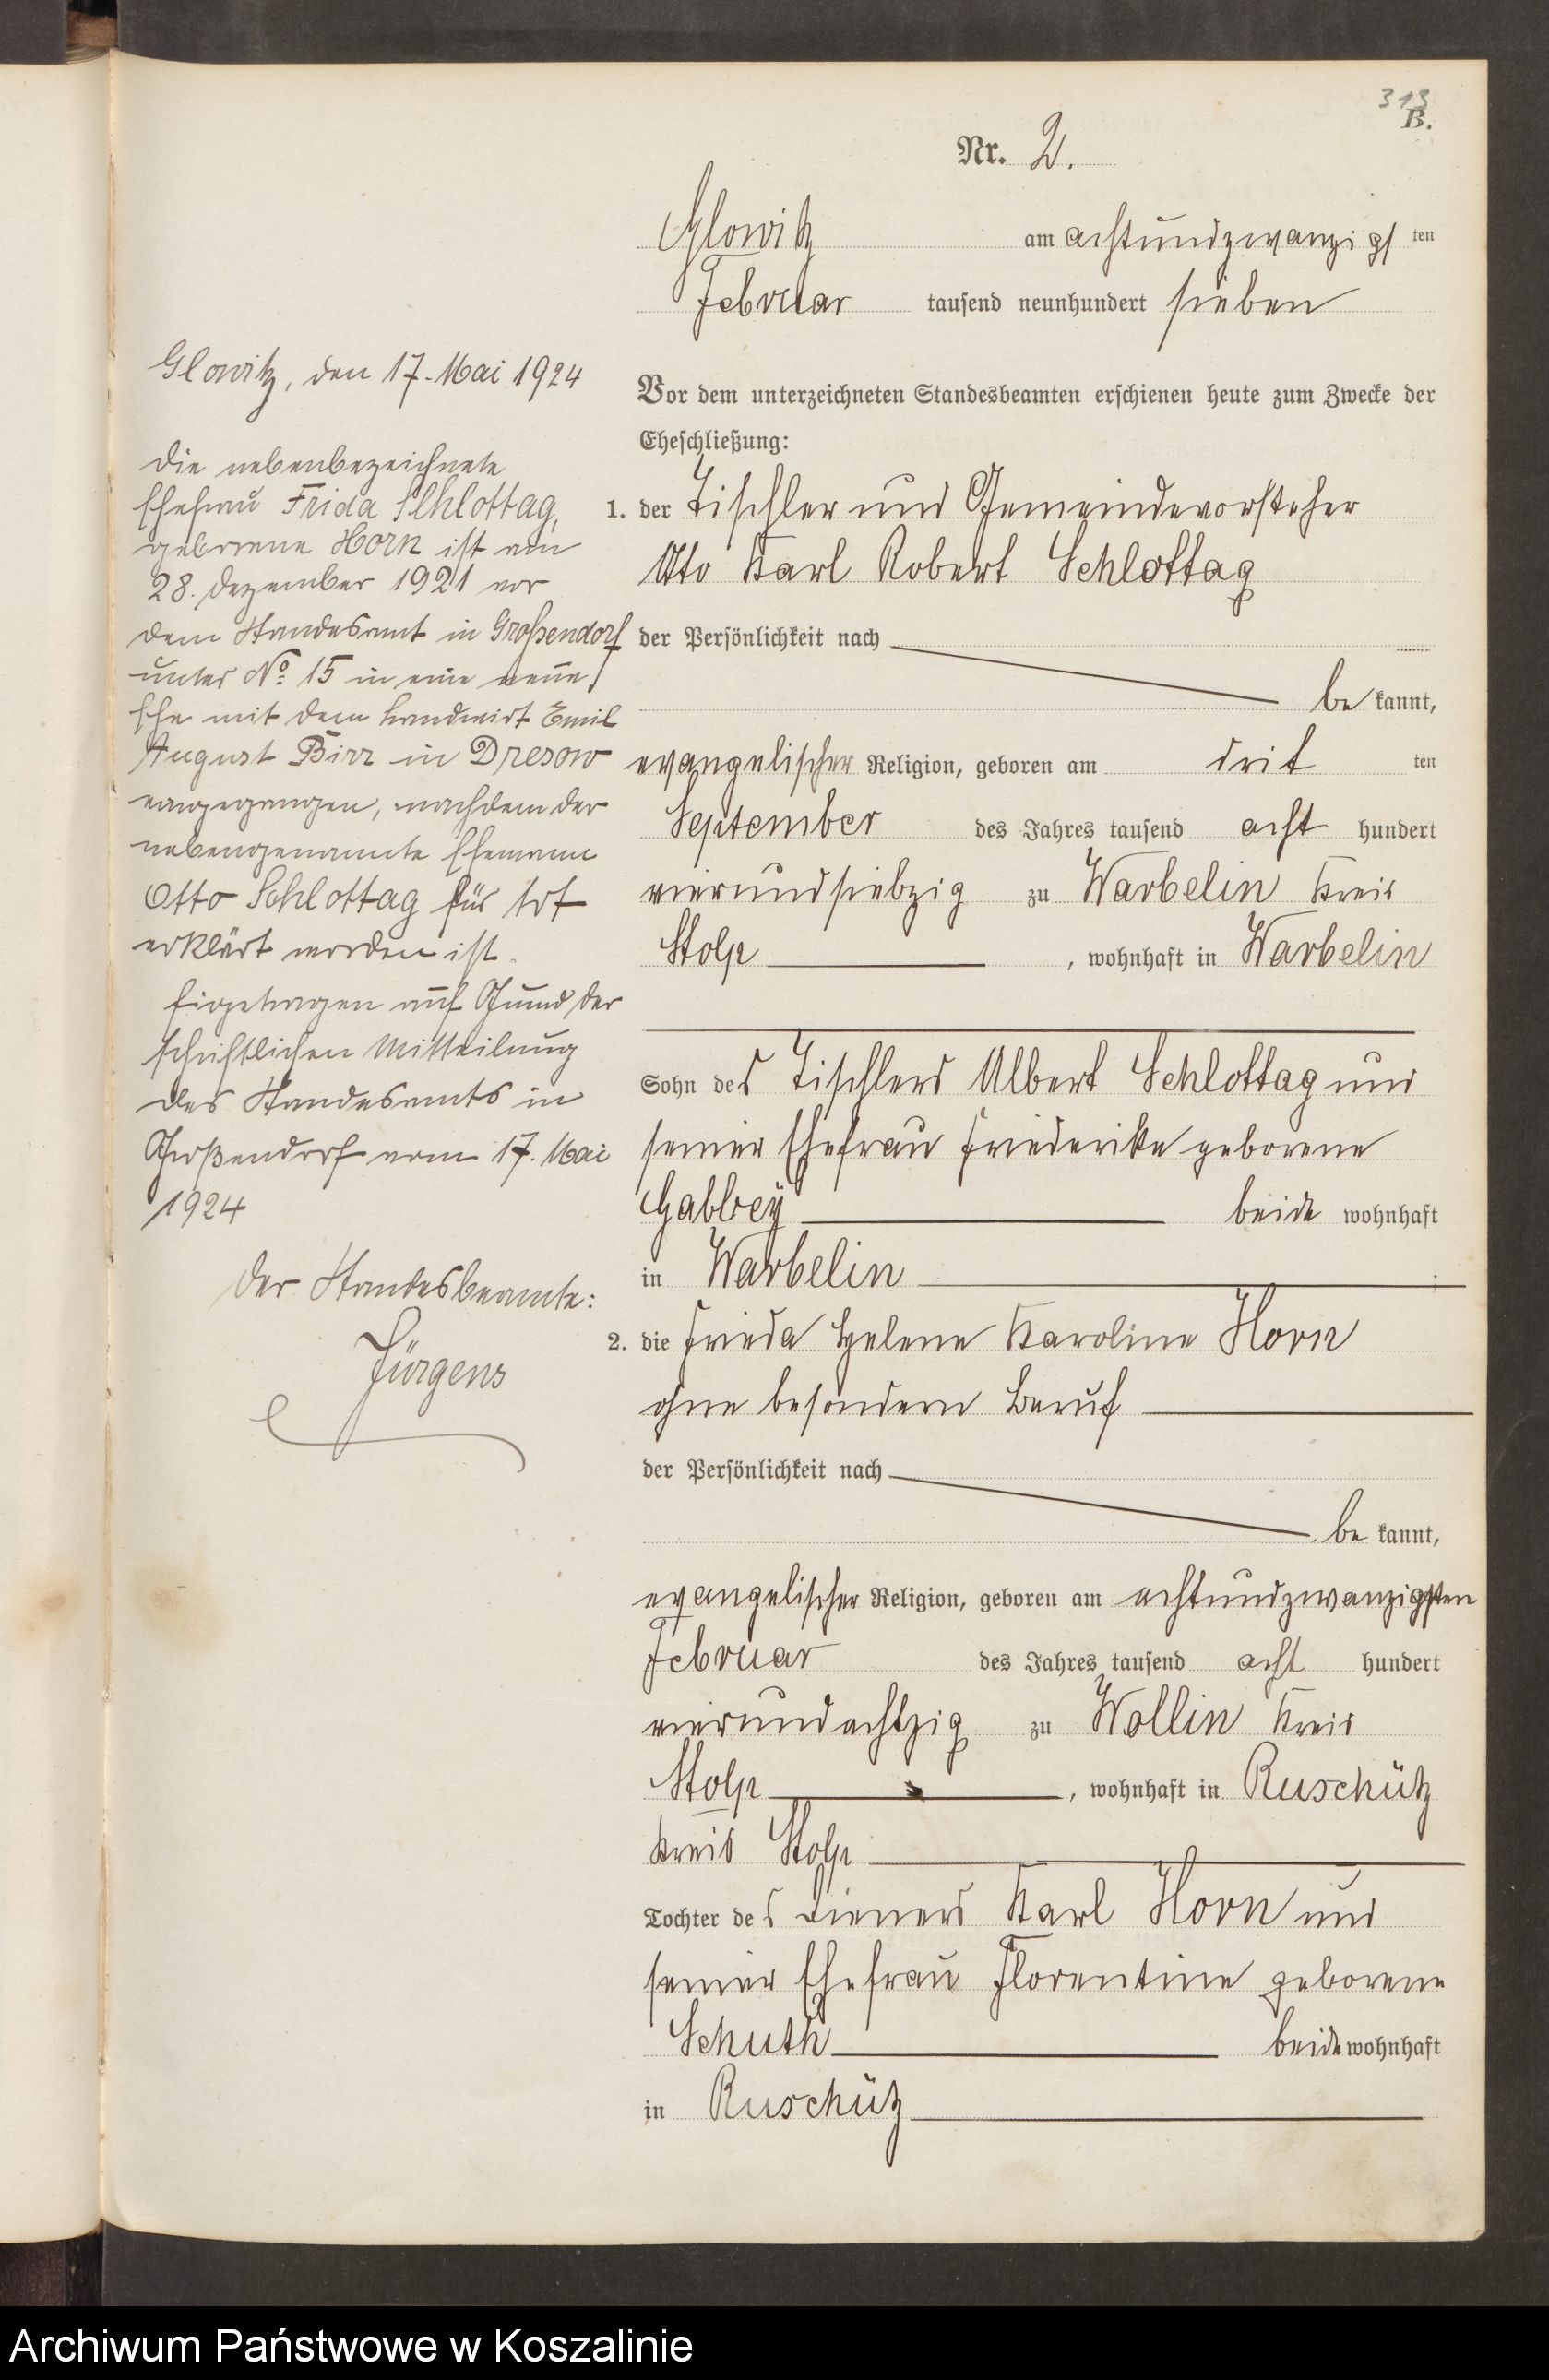 313
B.
Nr. 2.
Glowitz am achtundzwanzigsten
Februar tausend neunhundert sieben
Vor dem unterzeichneten Standesbeamten erschienen heute zum Zwecke der
Eheschließung:
1. der Tischler und Gemeindevorsteher
Otto Karl Robert Schlottag
der Persönlichkeit nach
be kannt,
evangelischer Religion, geboren am drit ten
September des Jahres tausend acht hundert
vierundsiebzig zu Warbelin Kreis
Stolp, wohnhaft in Warbelin
Sohn des Tischlers Albert Schlottag und
seiner Ehefrau Friederike geborene
Gabbey beide wohnhaft
in Warbelin
2. die Frieda Helene Karoline Horn
ohne besondern Beruf
der Persönlichkeit nach
be kannt,
evangelischer Religion, geboren am achtundzwanzigsten
Februar des Jahres tausend acht hundert
vierundachtzig zu Wollin Kreis
Stolp, wohnhaft in Ruschütz
Kreis Stolp
Tochter des Dieners Karl Horn und
seiner Ehefrau Florentine geborene
Schuth beide wohnhaft
in Ruschütz
Glowitz, den 17. Mai 1924
Die nebenbezeichnete
Ehefrau Frida Schlottag,
geborene Horn ist am
28. Dezember 1921 vor
dem Standesamt in Großendorf
unter No. 15 in eine neue
Ehe mit dem Landwirt Emil
August Birr in Dresow
eingegangen, nachdem der
nebengenannte Ehemann
Otto Schlottag für tot
erklärt worden ist.
Eigetragen auf Grund der
schriftlichen Mitteilung
des Standesamts in
Großendorf vom 17. Mai
1924
Der Standesbeamte:
Jürgens
Archiwum Państwowe w Koszalinie